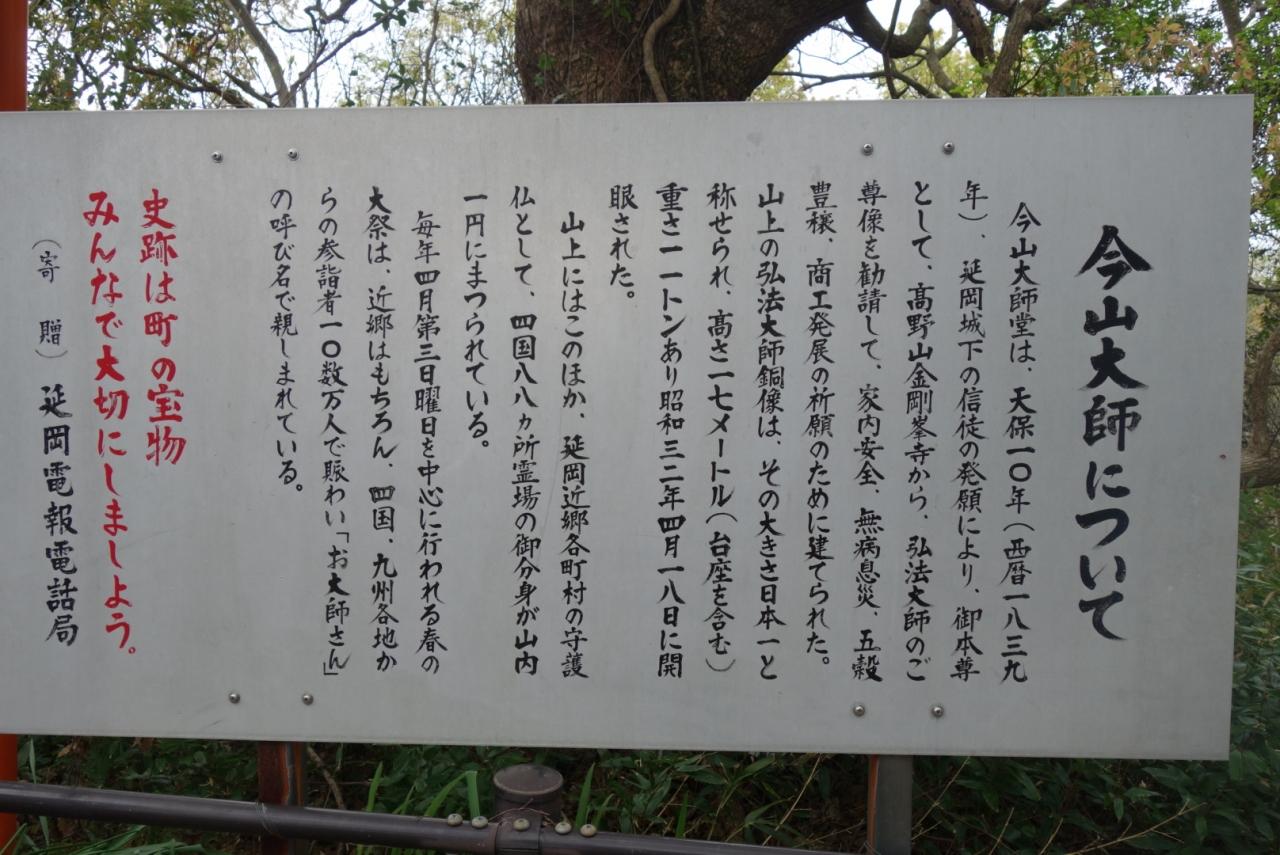 今山大師について
今山大師堂は、天保一〇年（西暦一八三九
年）、延岡城下の信徒の発願により、御本尊
として、高野山金剛峯寺から、弘法大師のご
尊像を勧請して、家内安全、無病息災、五穀
豊穣、商工発展の祈願のために建てられた。
山上の弘法大師銅像は、その大きさ日本一と
称せられ、高さ一七メートル（台座を含む）
重さ一一トンあり昭和三二年四月一八日に開
眼された。
山上にはこのほか、延岡近郷各町村の守護
仏として、四国八八ヵ所霊場の御分身が山内
一円にまつられている。
毎年四月第三日曜日を中心に行われる春の
大祭は、近郷はもちろん、四国、九州各地か
らの参詣者一〇数万人で賑わい「お大師さん」
の呼び名で親しまれている。
史跡は町の宝物
みんなで大切にしましょう。
（寄贈）延岡電報電話局